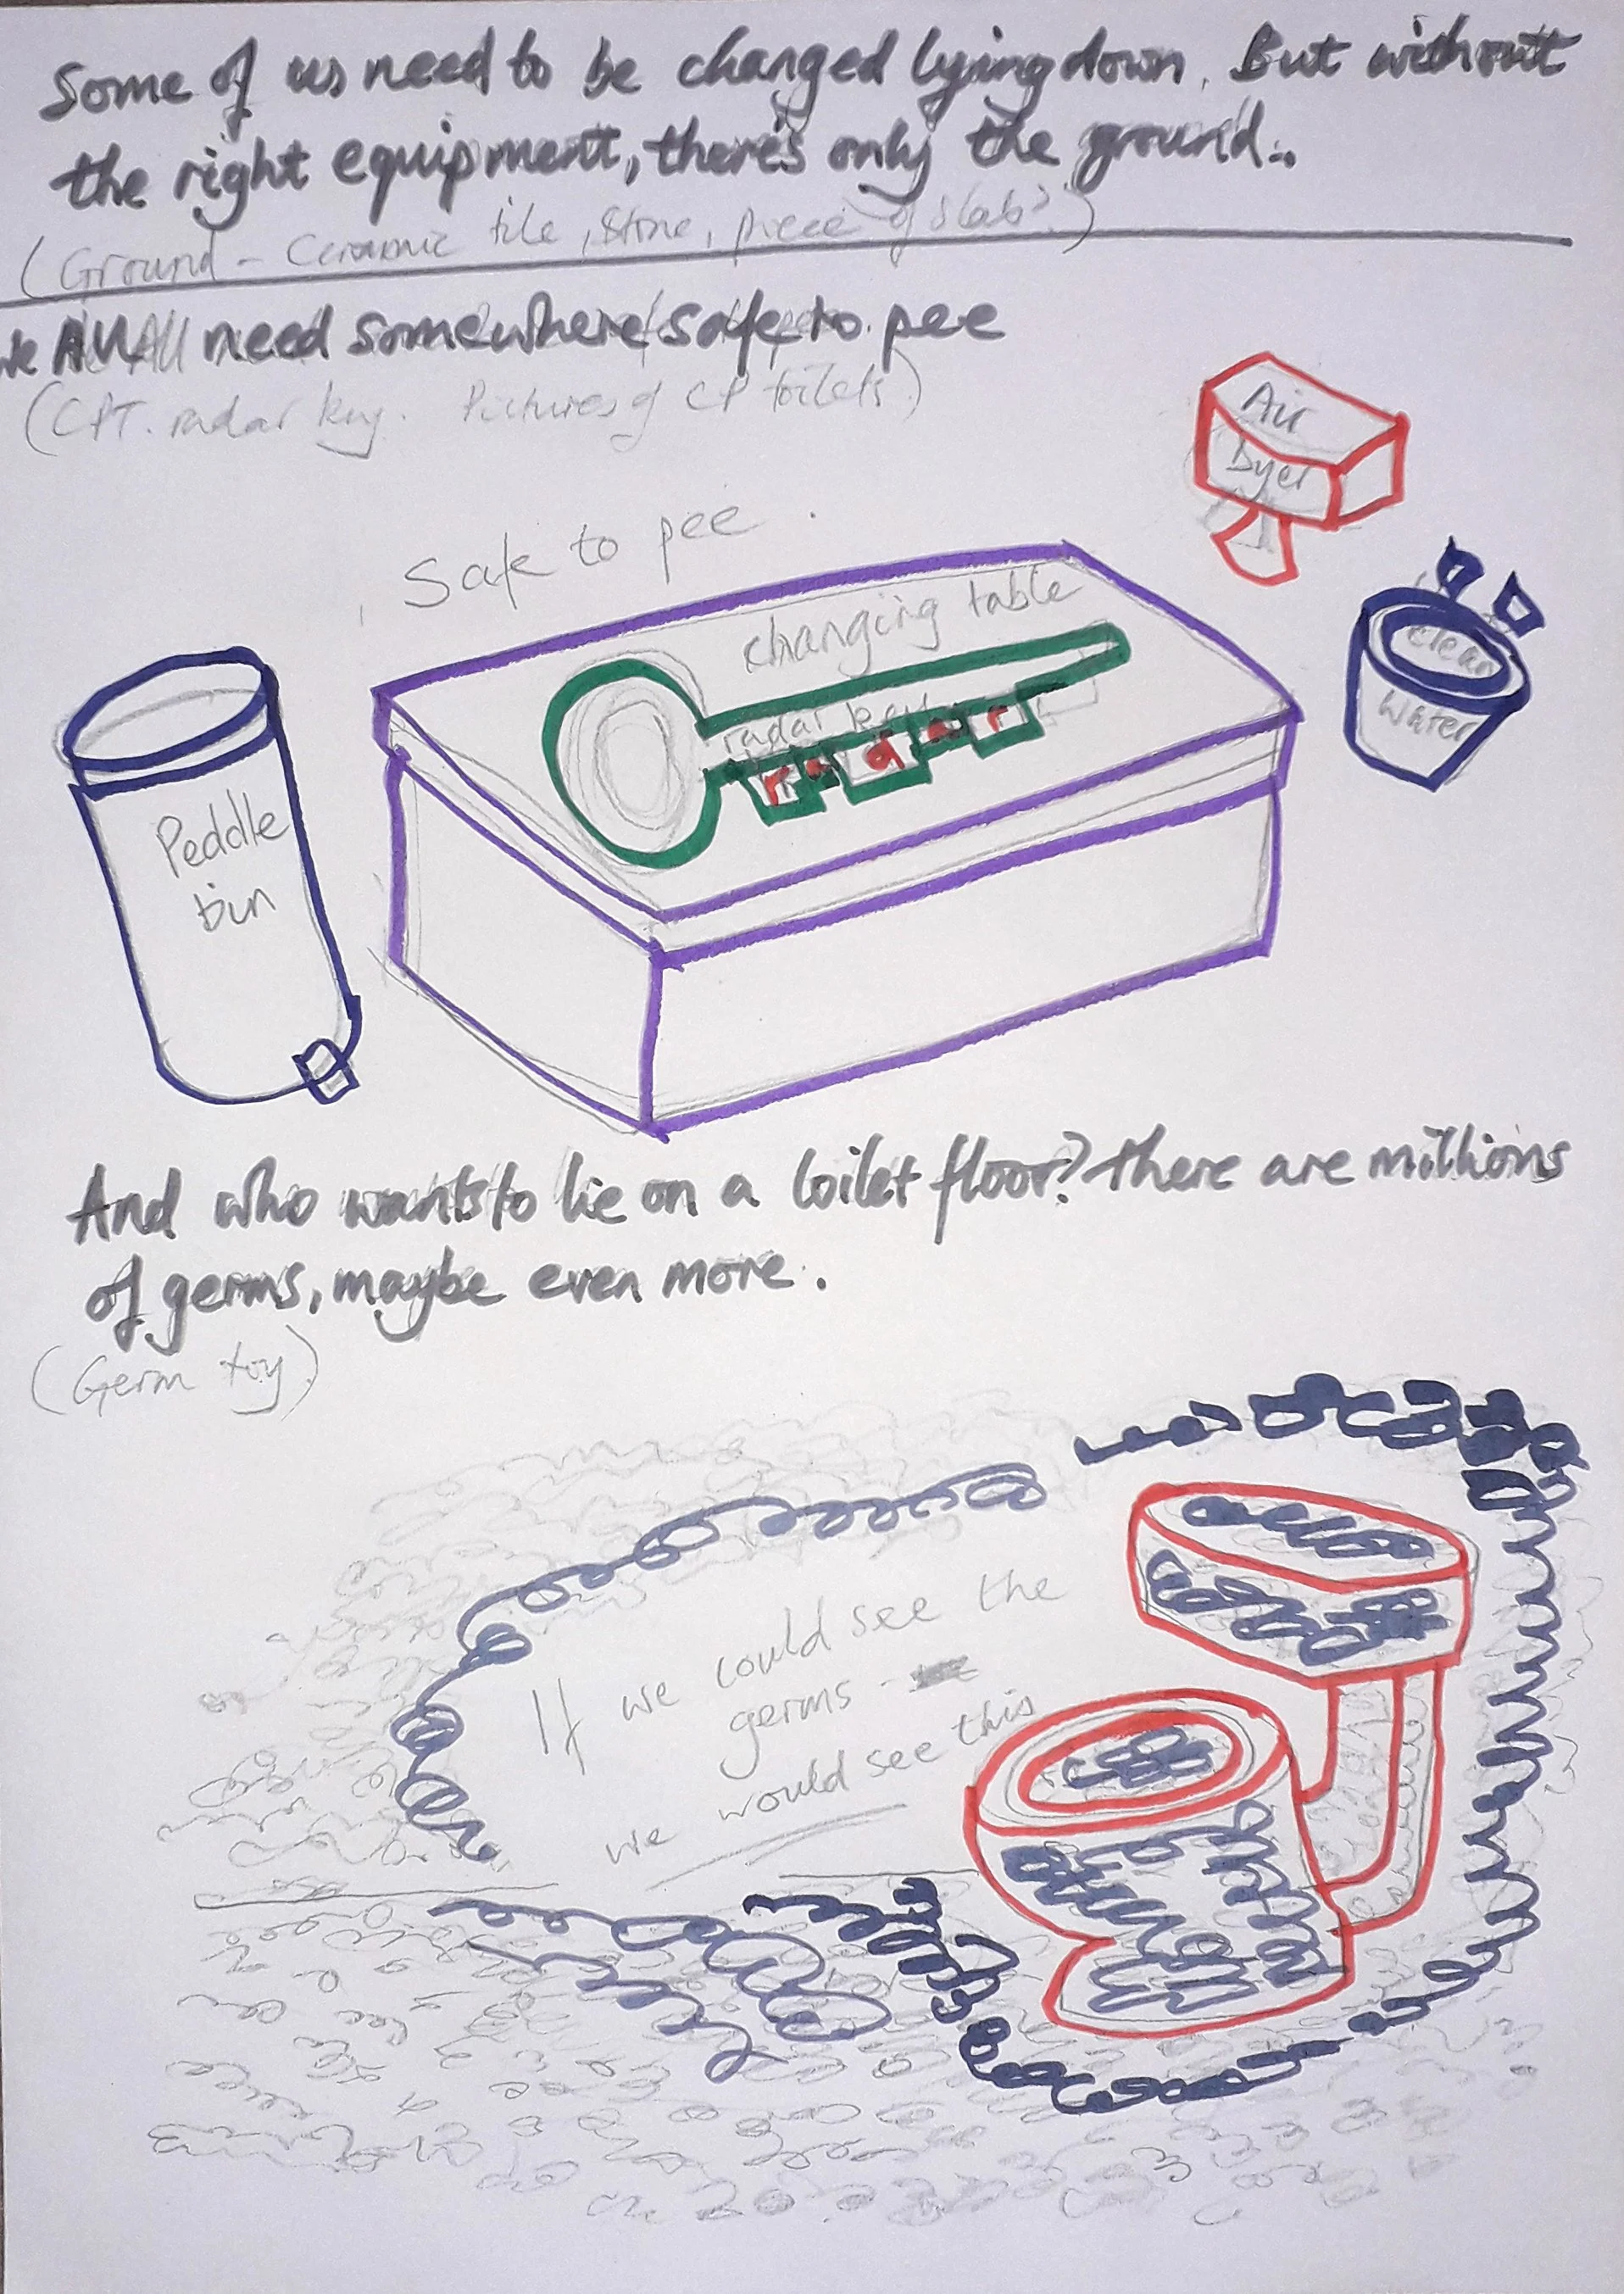 Some of us need to be changed lying down. But without
the right equipment, there's only the ground..
(Ground - Ceramic tile, Stone, piece of slab?)
we All need somewhere safe to pee
(CPT. radar key. Pictures of CP toilets.)
Air
Dyer
Safe to pee
changing table
radar key
radar
clean
water
Peddle
bin
And who wants to lie on a toilet floor? There are millions
of germs, maybe even more.
(Germ toy)
If we could see the
germs -
we would see this